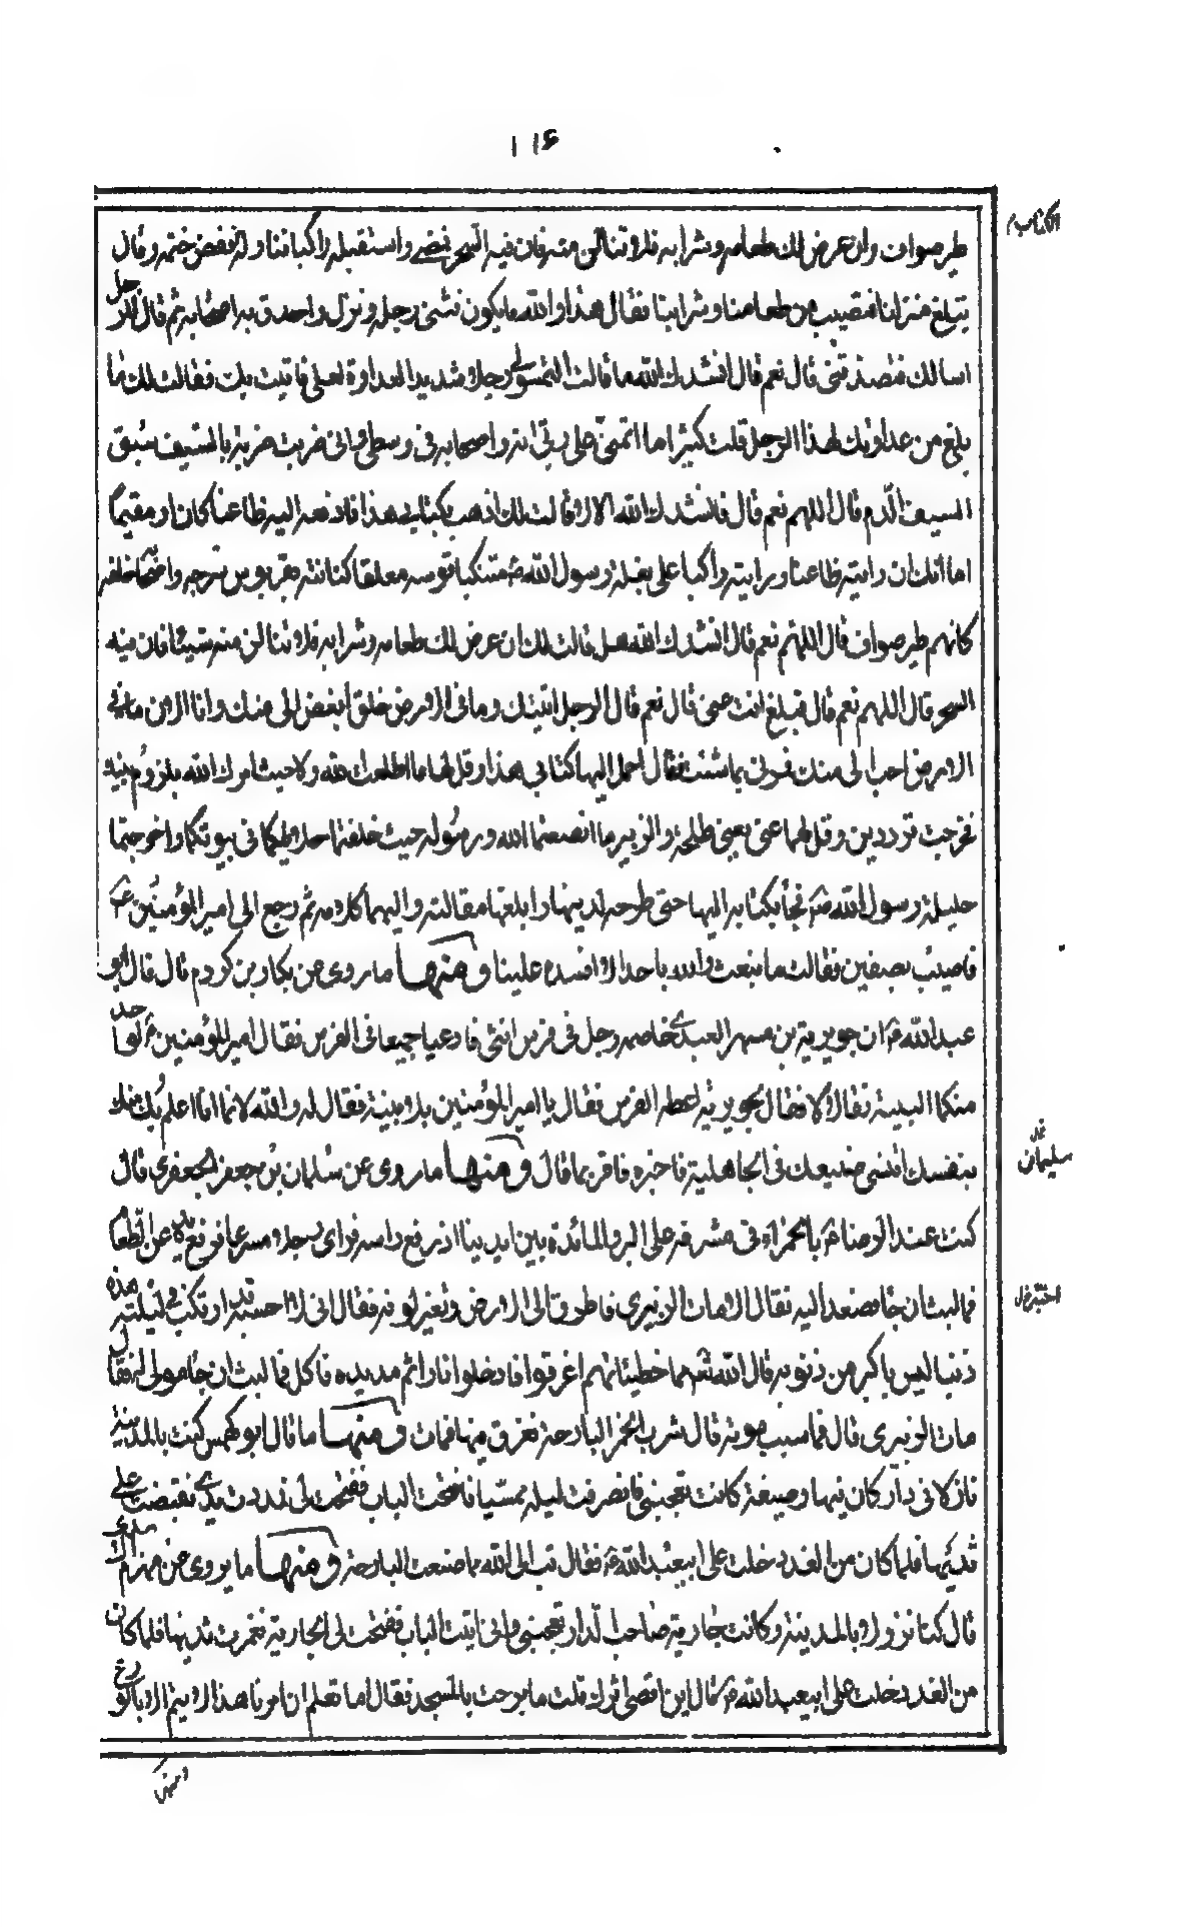 ١١۶
طير صواف وان عرض لك طعامه وشرابه فلا تنالن منه فان فيه السحر فمضى واستقبله راكبا فناوله ففض ختمه وقال
يتبلغ منزلنا فتصيب من طعامنا وشرابنا فقال هذا والله ما يكون فثنى رجله ونزل واحدق به اصحابه ثم قال للرجل
اسالك فتصدقني قال نعم قال انشدك الله ما قالت التمسوا لي رجلا شديد العداوة لعلي فاتيت بك فقالت لك ما
بلغ من عداوتك لهذا الرجل قلت كثيرا ما اتمنى على ربي انه واصحابه في وسطي واني ضربت ضربة بالسيف سبق
السيف الدم قال اللهم نعم قال فانشدك الله الا قالت لك اذهب بكتابي هذا فادفعه اليه ظاعنا كان او مقيما
اما انك ان رايته ظاعنا رايته راكبا على بغلة رسول الله ص متنكبا قوسه معلقا كنانته بقربوس سرجه واصحابه خلفه
كانهم طير صواف قال اللهم نعم قال انشدك الله هل قالت لك ان عرض لك طعامه وشرابه فلا تنالن منه شيئا فان فيه
السحر قال اللهم نعم قال فمبلغ انت عني قال نعم قال الرجل اتيتك وما في الارض خلق ابغض الي منك وانا الان ما في
الارض احب الي منك فمرني بما شئت فقال احمل اليها كتابي هذا وقل لها ما اطعت الله ولا حيث امرك الله بلزوم بيتك
فخرجت ترددين وقل لهما عني يعني طلحة والزبير ما انصفتما الله ورسوله حيث خلفتما حلايلكما في بيوتكما واخرجتما
حليلة رسول الله ص فجاء بكتابه اليها حتى طرحه لديها وابلغها مقالته واليهما كلامه ثم رجع الى امير المؤمنين ع
فاصيب بصفين فقالت ما نبعث والله باحد الا افسده علينا ومنها ما روي عن بكار بن كردم قال قال ابو
عبد الله ع ان جويرية بن مسهر العبدي خاصمه رجل في فرس انثى فادعيا جميعا في الفرس فقال امير المؤمنين ع الواحد
منكما البينة فقالا لا فقال لجويرية اعطه الفرس فقال يا امير المؤمنين بلا بينة فقال له والله لانا اعلم بك منك
بنفسك اتنسى صنيعك في الجاهلية فاخبره فاقر بما قال ومنها ما روي عن سلمان بن جعفر الجعفري قال
كنت عند الرضا ع بالحمراء في مشرفة على البر والمائدة بين ايدينا اذ رفع راسه فراى رجلا مسرعا فرفع يده عن الطعام
فما لبث ان جاء فصعد اليه فقال مات الزبيري فاطرق الى الارض وتغير لونه فقال اني لاحسبه قد ارتكب في ليلته هذه
ذنبا ليس باكبر من ذنوبه قال الله تع مما خطيئاتهم اغرقوا فادخلوا نارا ثم مد يده فاكل فما لبث ان جاء مولى له فقال
مات الزبيري قال فما سبب موته قال شرب الخمر البارحة فغرق فيها فمات ومنها ما قال ابو كهمس كنت بالمدينة
نازلا في دار كان فيها وصيفة كانت تعجبني فانصرفت ليلة ممسيا فافتحت الباب ففتحت لي فمددت يدي فقبضت على
ثديها فلما كان من الغد دخلت على ابي عبد الله ع فقال تب الى الله مما صنعت البارحة ومنها ما يروى عن مهزم الاسدي
قال كنا نزولا بالمدينة وكانت جارية صاحب الدار تعجبني واني اتيت الباب ففتحت لي الجارية فغمزت ثديها فلما كان
من الغد دخلت على ابي عبد الله ع قال اين اقصى اثرك قلت ما برحت بالمسجد فقال اما تعلم ان امرنا هذا لا يتم الا بالورع
سليمان خل